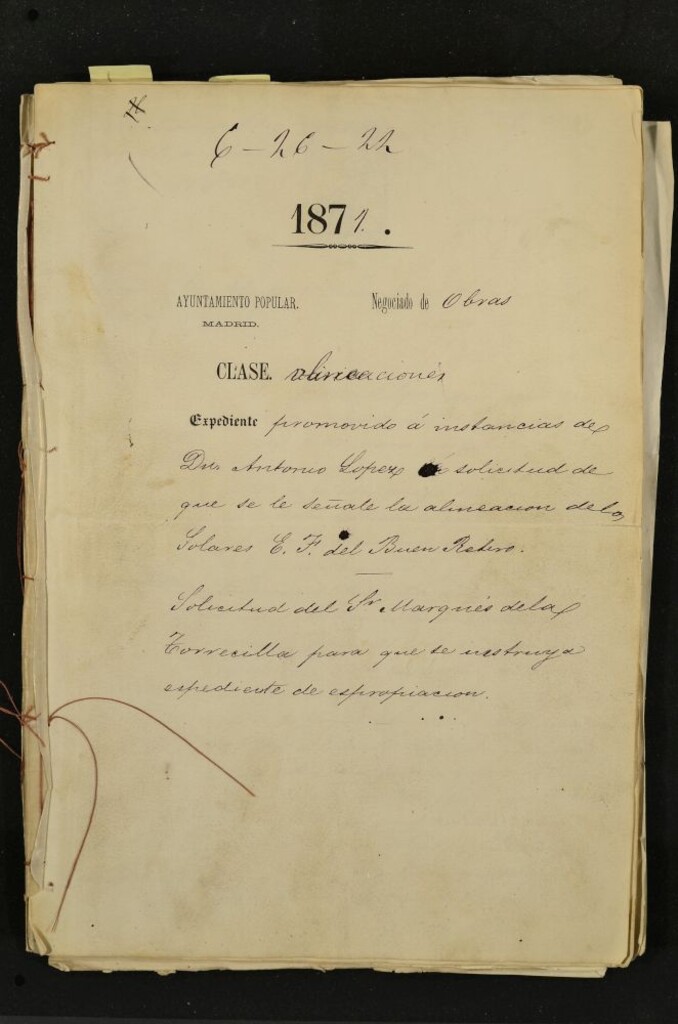 6-26-22
1871.
AYUNTAMIENTO POPULAR. Negociado de Obras
MADRID.
CLASE. alineaciones
Expediente promovido á instancias de
Dn. Antonio Lopez solicitud de
que se le señale la alineacion de los
Solares E. F. del Buen Retiro.
Solicitud del Sr Marqués de la
Torrecilla para que se instruya
espediente de espropiacion.